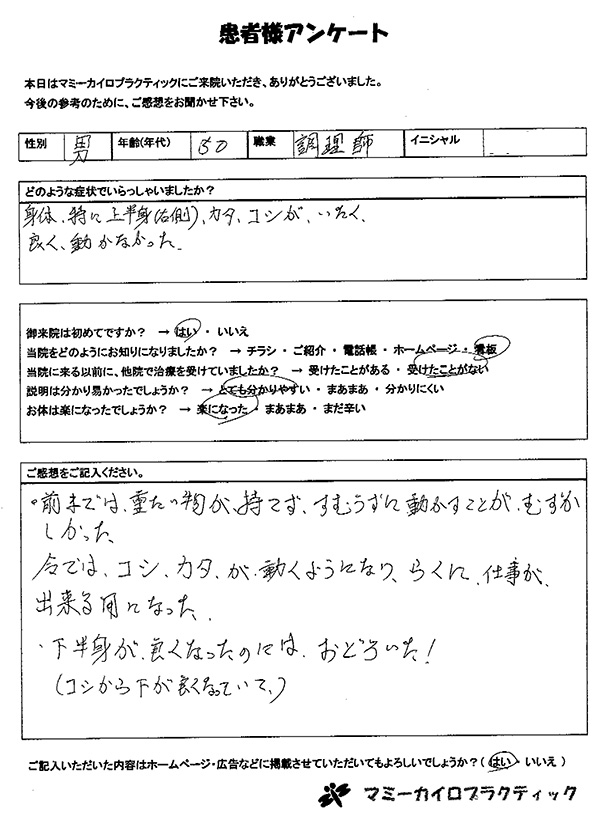 患者様アンケート
本日はマミーカイロプラクティックにご来院いただき、ありがとうございました。
今後の参考のために、ご感想をお聞かせ下さい。
性別 男 年齢(年代) 50 職業 調理師 イニシャル
どのような症状でいらっしゃいましたか?
身体、特に上半身(右側)、カタ、コシが、いたく、
良く、動かなかった。
御来院は初めてですか? → はい ・ いいえ
当院をどのようにお知りになりましたか? → チラシ ・ ご紹介 ・ 電話帳 ・ ホームページ ・ 看板
当院に来る以前に、他院で治療を受けていましたか? → 受けたことがある ・ 受けたことがない
説明は分かり易かったでしょうか? → とても分かりやすい ・ まあまあ ・ 分かりにくい
お体は楽になったでしょうか? → 楽になった ・ まあまあ ・ まだ辛い
ご感想をご記入ください。
・前までは、重たい物が、持てず、すむうずに動かすことが、むずか
しかった、
今では、コシ、カタ、が、動くようになり、らくに、仕事が、
出来る用になった、
・下半身が、良くなったのには、おどろいた!
(コシから下が良くなっていて、)
ご記入いただいた内容はホームページ・広告などに掲載させていただいてもよろしいでしょうか?( はい ・ いいえ )
マミーカイロプラクティック